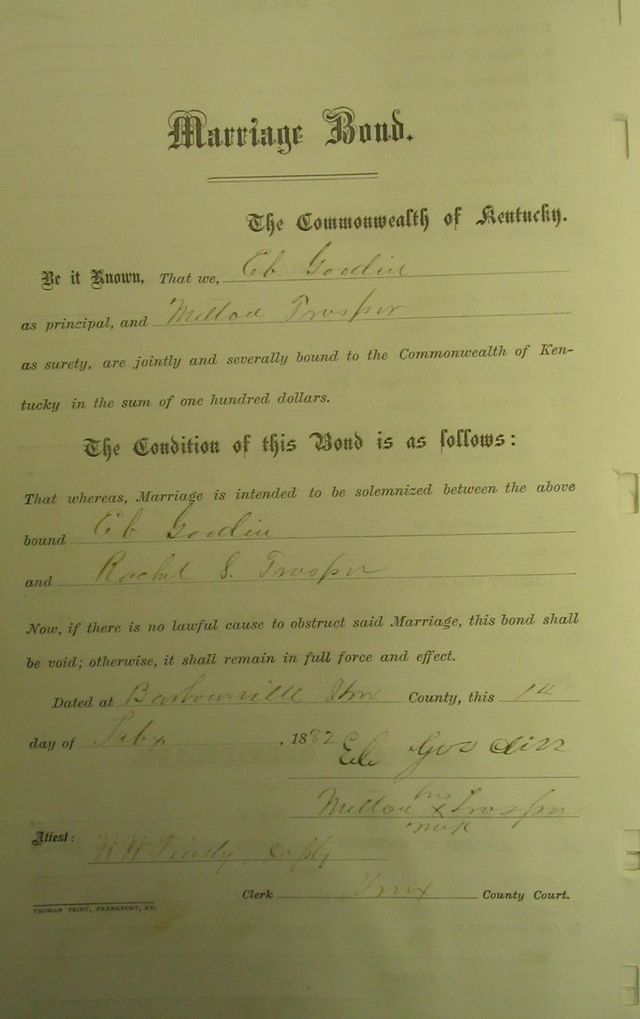 Marriage Bond.
The Commonwealth of Kentucky.
Be it Known, That we, Eb Goodin
as principal, and Millod Prosper
as surety, are jointly and severally bound to the Commonwealth of Ken-
tucky in the sum of one hundred dollars.
The Condition of this Bond is as follows:
That whereas, Marriage is intended to be solemnized between the above
bound Eb Goodin
and Rachel S. Trosper
Now, if there is no lawful cause to obstruct said Marriage, this bond shall
be void; otherwise, it shall remain in full force and effect.
Dated at Barbourville Knox County, this 14
day of Feby. , 1882
Eb Goodin
his
x Trosper
mark
Attest:
Clerk Knox County Court.
YEOMAN PRINT, FRANKFORT, KY.